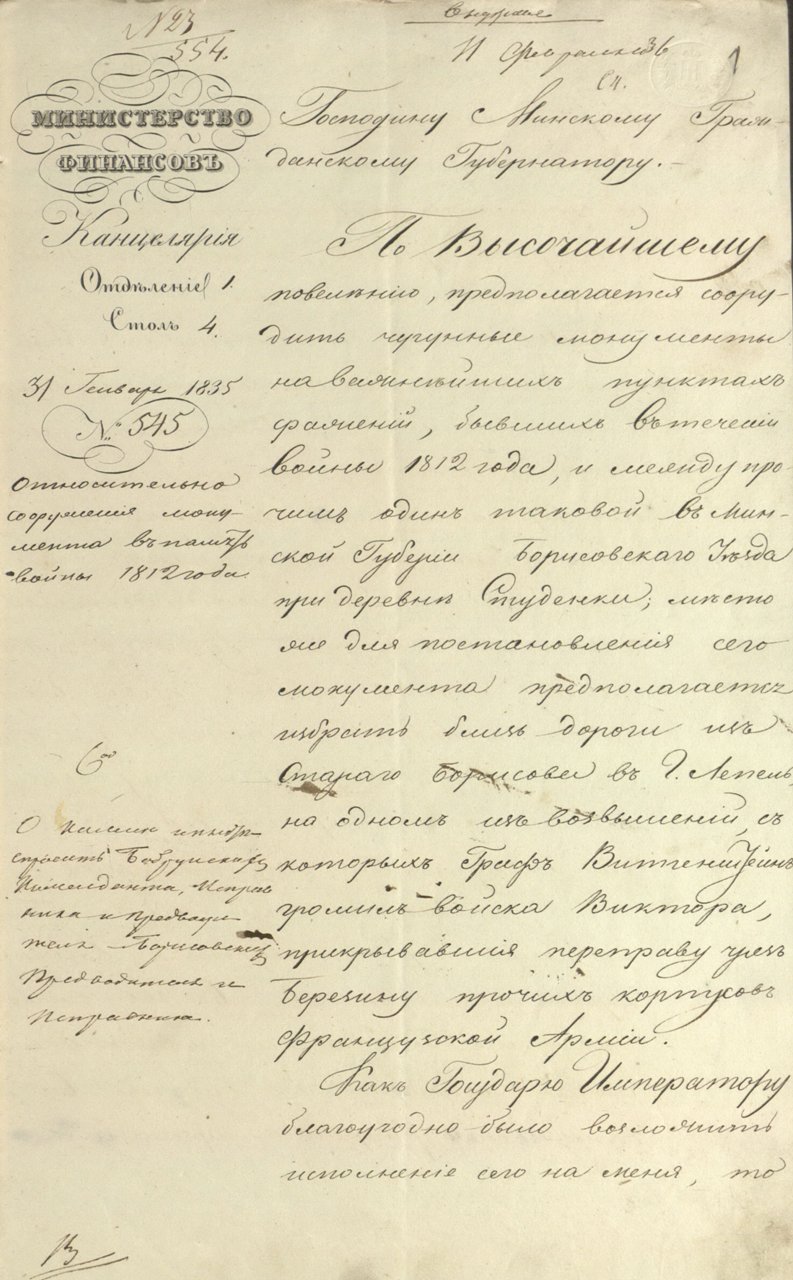 № 23
554.
МИНИСТЕРСТВО
ФИНАНСОВЪ
Канцелярія
Отдѣленіе 1.
Столъ 4.
31 Генваря 1835
№ 545
Относительно
сооруженія мону-
мента въ память
войны 1812 года.
1
Господину Минскому Граж-
данскому Губернатору.
По Высочайшему
повелѣнію, предполагается соору-
дить чугунные монументы
на важнѣйшихъ пунктахъ
сраженій, бывшихъ въ теченіи
войны 1812 года, и между про-
чимъ одинъ таковой въ Мин-
ской Губерніи Борисовскаго Уѣзда
при деревнѣ Студенки; мѣсто
же для постановленія сего
монумента предполагается
избрать близь дороги изъ
Стараго Борисова въ Г. Лепель,
на одномъ изъ возвышеній, съ
которыхъ Графъ Витгенштейнъ
громилъ войска Виктора,
прикрывавшія переправу чрезъ
Березину прочихъ корпусовъ
Французской Арміи.
Какъ Государю Императору
благоугодно было возложить
исполненіе сего на меня, то
спросить Бобруйскаго
Коменданта, Исправ
ника и Предводи-
теля Борисовскаго
Предводителя и
Исправника.